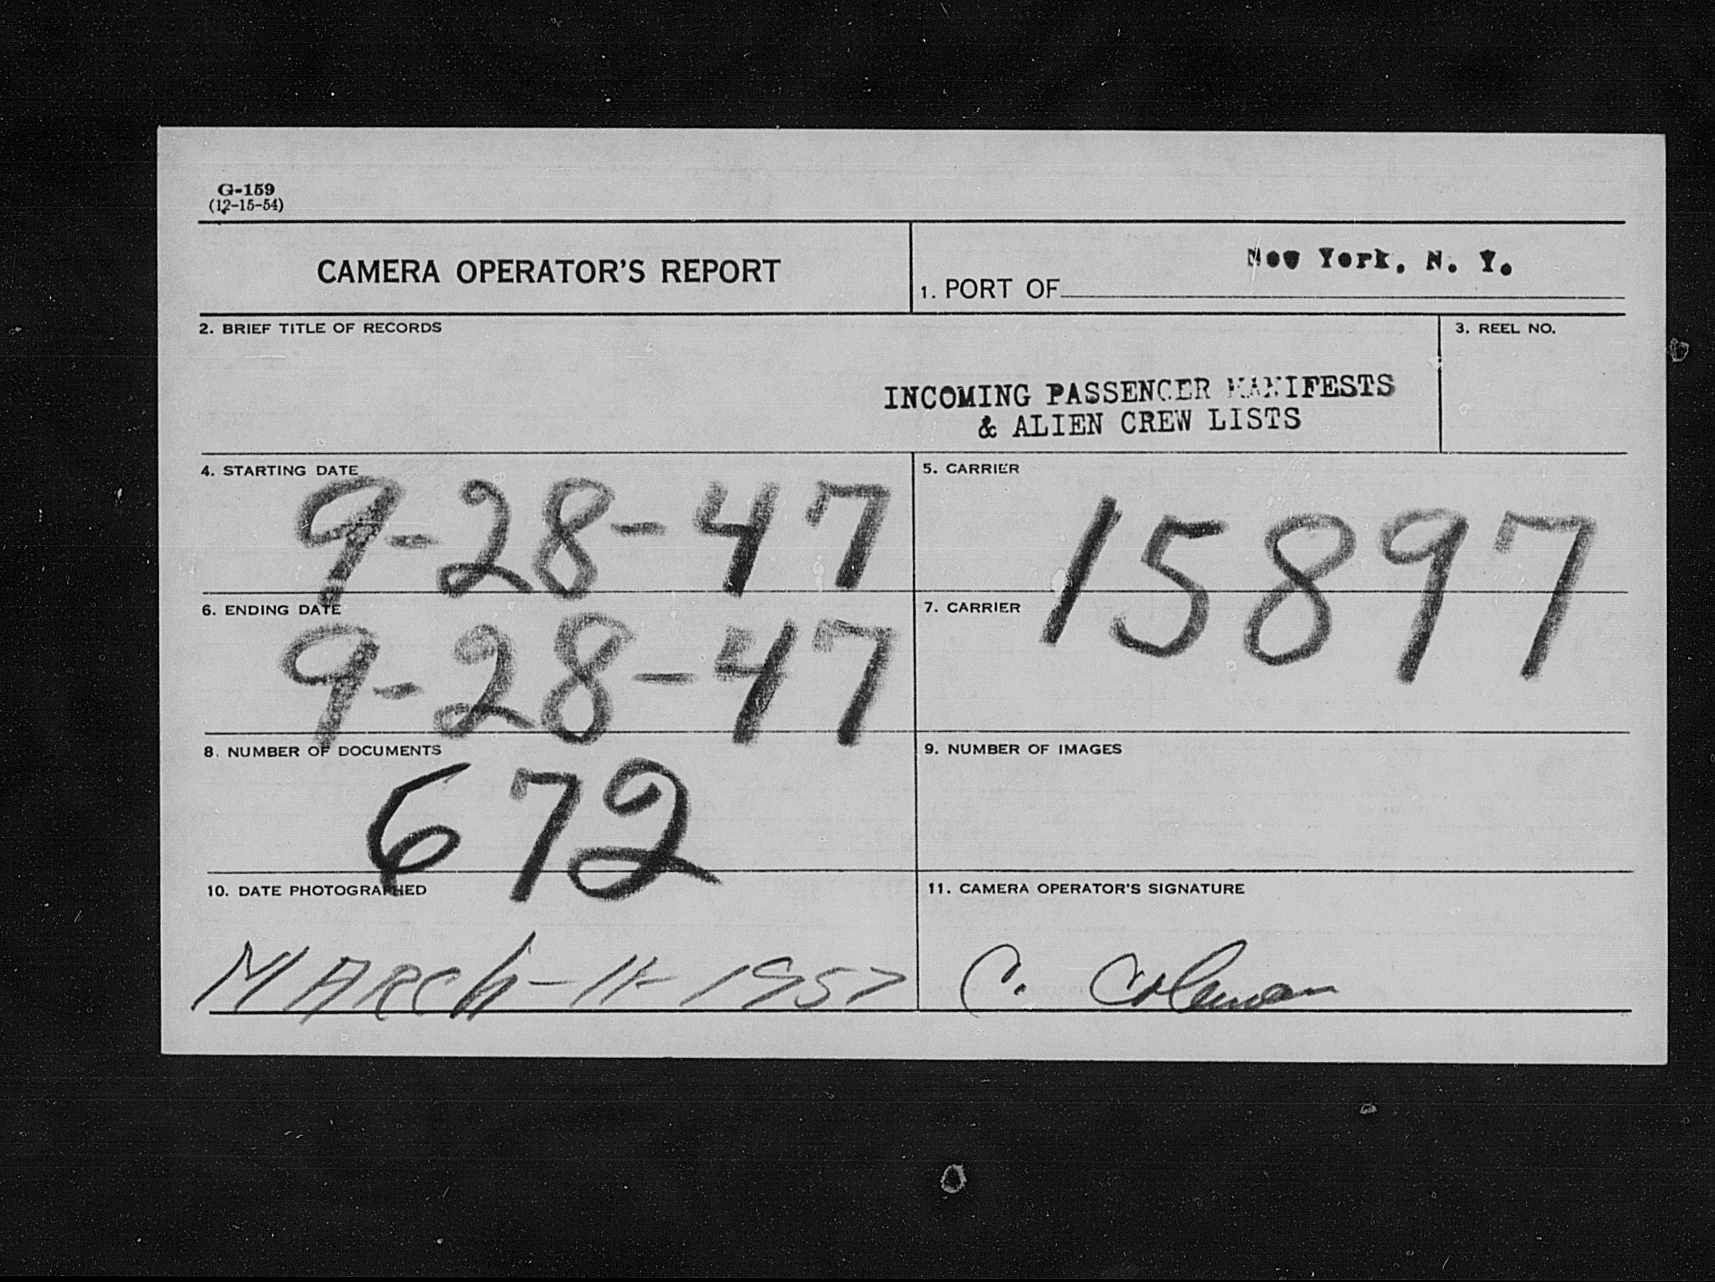 G-159
(12-15-54)
CAMERA OPERATOR'S REPORT
1. PORT OF New York, N. Y.
2. BRIEF TITLE OF RECORDS
3. REEL NO.
INCOMING PASSENGER MANIFESTS
& ALIEN CREW LISTS
4. STARTING DATE
9-28-47
5. CARRIER
15897
6. ENDING DATE
9-28-47
7. CARRIER
8. NUMBER OF DOCUMENTS
672
9. NUMBER OF IMAGES
10. DATE PHOTOGRAPHED
MARCh-11-1957
11. CAMERA OPERATOR'S SIGNATURE
C. Coleman